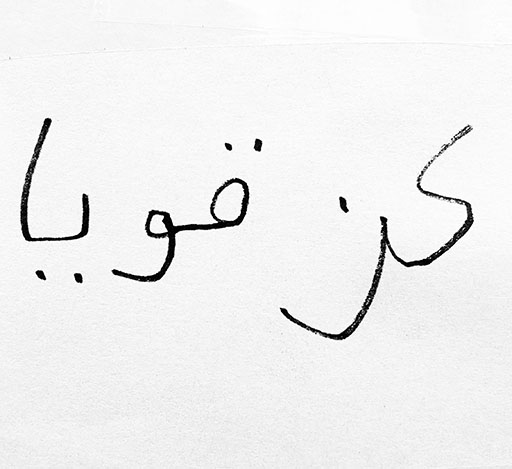 كن قويا